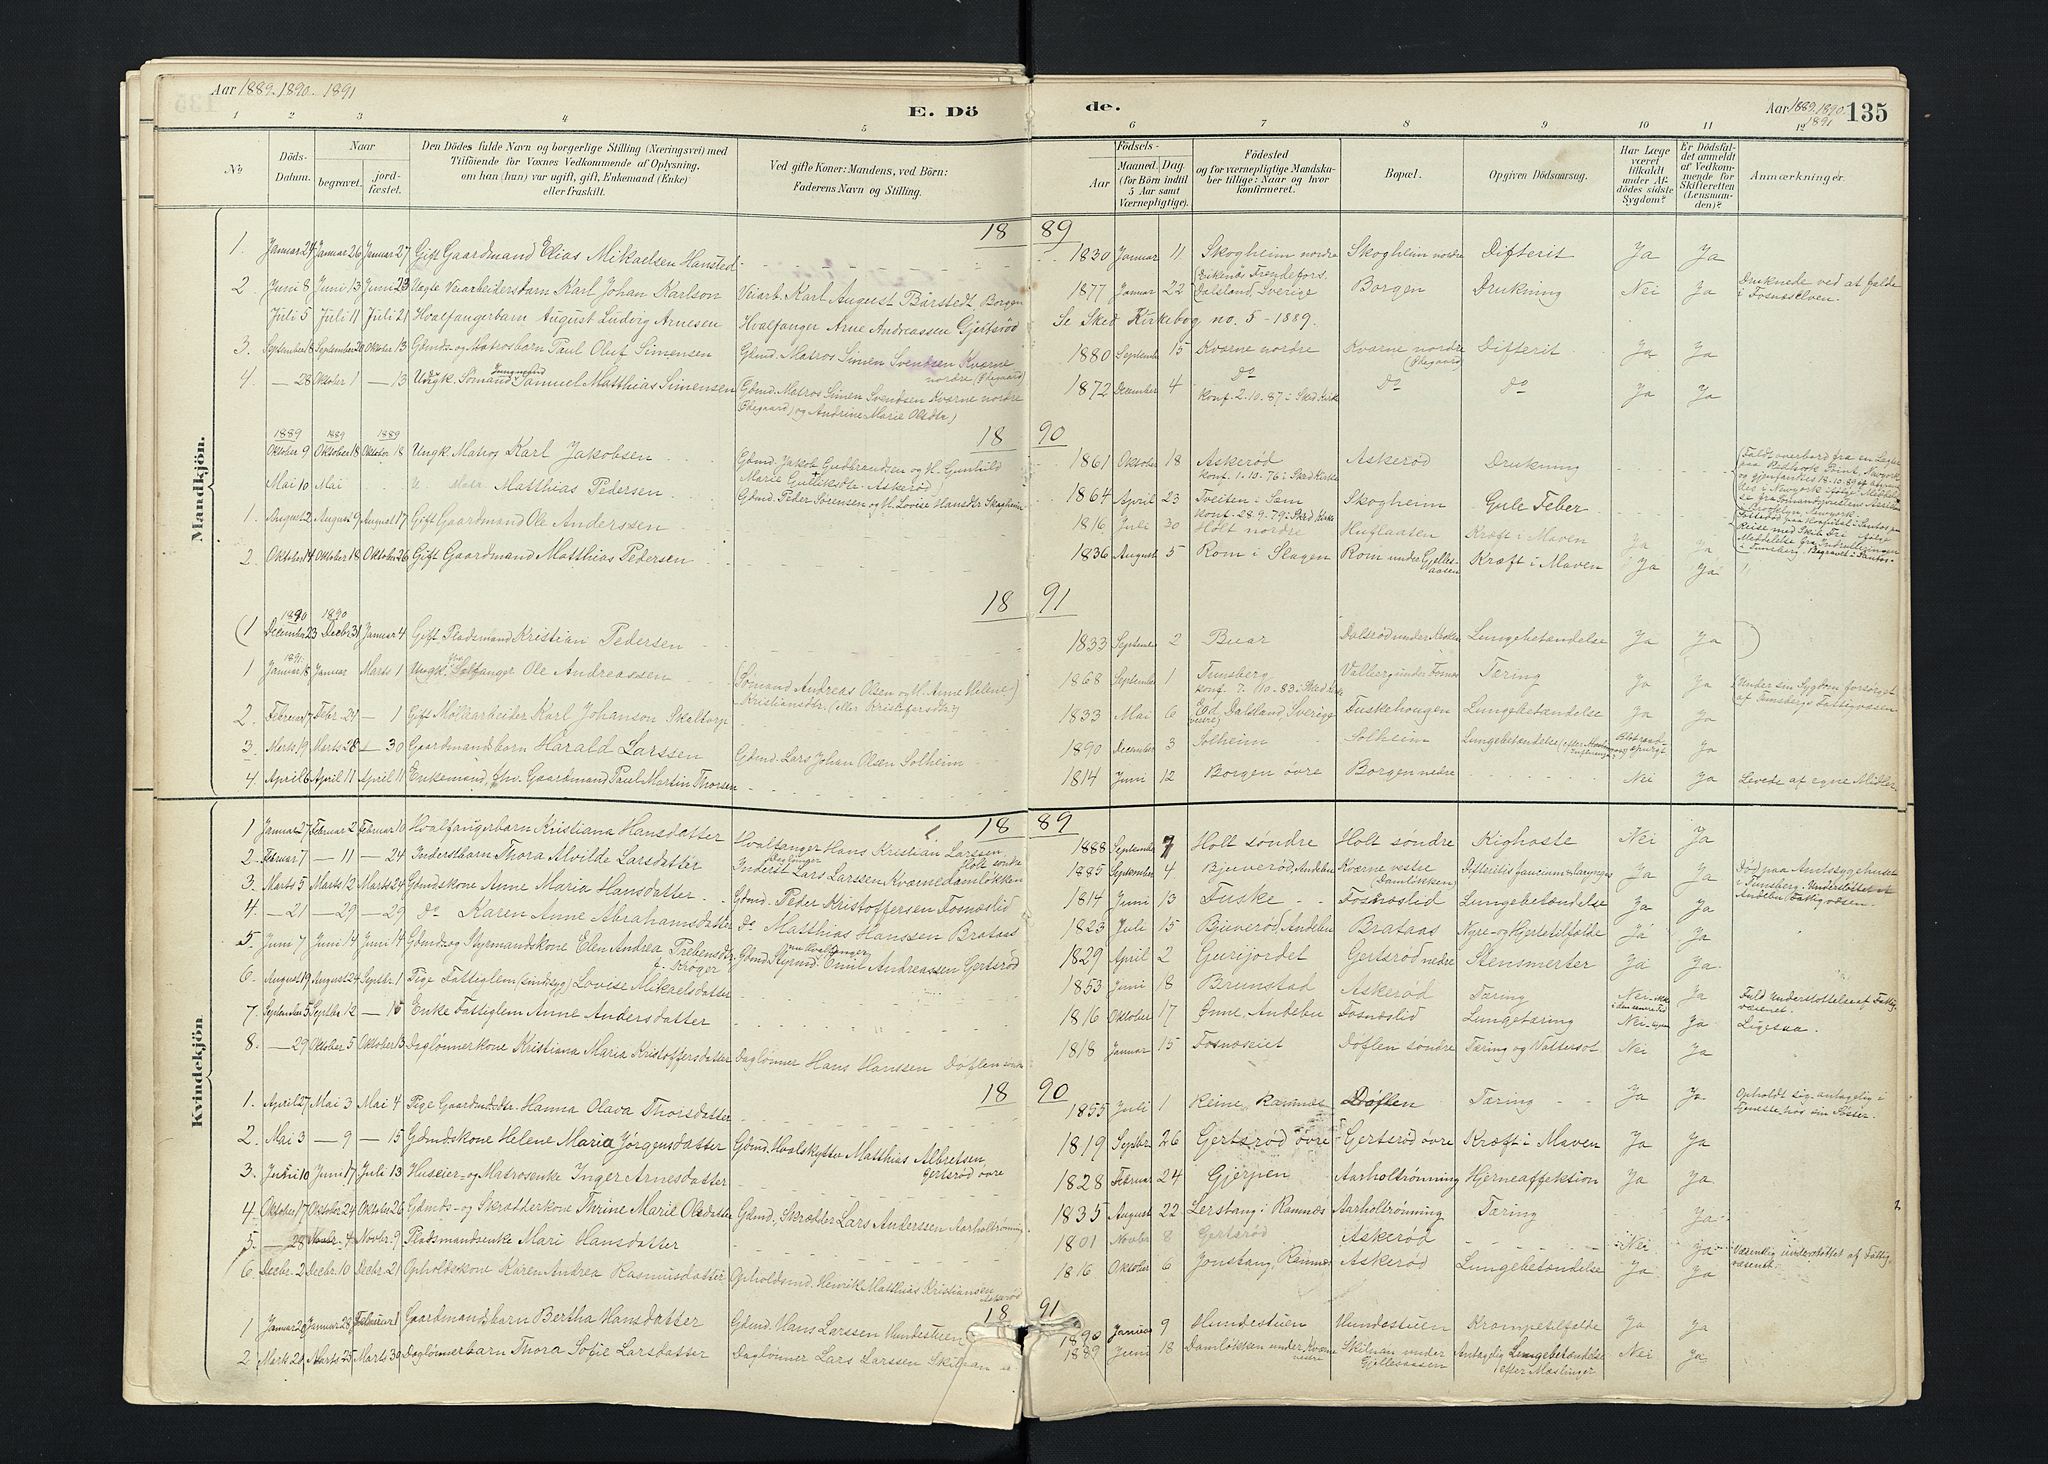 Aar 1889. 1890. 1891
E. Dö
de.
Aar 1889. 1890. 1891
135
1 2 3 4 5 6 7 8 9 10 11 12
No
Döds-Datum.
Naar
begravet.
jordfæstet.
Den Dödes fulde Navn og borgerlige Stilling (Næringsvei) med
Tilföiende for Voxnes Vedkommende af Oplysning,
om han (hun) var ugift, gift, Enkemand (Enke)
eller fraskilt.
Ved gifte Koner: Mandens, ved Börn:
Faderens Navn og Stilling.
Födsels-
Aar
Maaned. Dag.
(for Börn indtil
5 Aar samt
Værnepligtige).
Födested
og for værnepligtige Mandskaber tillige: Naar og hvor
konfirmeret.
Bopæl.
Opgiven Dödsaarsag.
Har Læge
været
tilkaldt
under Afdödes sidste
Sygdom?
Er Dödsfaldet anmeldt
af Vedkommende for
Skifteretten
(Lensmanden)?
Anmærkninger.
Mandkjön.
1889
1. Januar 24 Januar 26 Januar 27 Gift Gaardmand Elias Mikaelsen Hansted 1830 Januar 11 Skogheim nordre Skogheim nordre Difterit Ja Ja
2 Juni 8 Juni 13 Juni 23 Uægte Veiarbeidersbarn Karl Johan Karlson Veiarb. Karl August Börstedt, Borgen 1877 Januar 22 Dalsland, Sverige Borgen Drukning Nei Ja Druknede ved at falde i Fosnæselven.
Juli 5 Juli 11 Juli 21 Hvalfangerbarn August Ludvig Arnesen Hvalfanger Arne Andreassen Gjertsröd Se Sked Kirkebog no. 5 - 1889.
3. September 18 September 20 Oktober 13 Gdmds- og Matrosbarn Paul Oluf Simensen Gdmd. Matros Simen Svendsen Kværne nordre (Ødegaard) 1880 September 15 Kværne nordre Kværne nordre (Ødegaard) Difterit Ja Ja
4. — 28 Oktober 1 — 13 Ungk. Sömand Samuel Matthias Simensen Gdmd. Matros Simen Svendsen Kværne nordre (Ødegaard) og Andrine Marie Olsdtr) 1872 December 4 Do konf. 2.10.87 i Sked Kirke Do Do Ja Ja
1890
1889 Oktober 9 1889 Oktober 18 1889 Oktober 18 Ungk Matros Karl Jakobsen Gdmd. Jakob Gudbrandsen og H. Gunhild Marie Gulliksdtr Askeröd 1861 Oktober 18 Askeröd konf. 1.10.76 i Sked Kirke Askeröd Drukning
Mai 10 Mai Matthias Pedersen Gdmd. Peder Sörensen og H. Lovise Hansdtr Skogheim 1864 April 23 Tveiten i Sem konf. 28.9.79 i Sked Kirke Skogheim Gule Feber
1. August 2 August 9 August 17 Gift Gaardmand Ole Anderssen 1816 Juli 30 Holt nordre Kræft i Maven Ja Ja
2 Oktober 14 Oktober 18 Oktober 26 Gift Gaardmand Matthias Pedersen 1836 August 5 Rom i Slagen Rom under Kræft i Maven Ja Ja
1891
(1 1890 December 23 1890 Decbr 31 Januar 4 Gift Pladsmand Kristian Pedersen 1833 September 2 Buar Lungebetændelse Ja Ja
1 1891. Januar 18 Januar Marts 1 Ungk. Ole Andreassen (Sömand Andreas Olsen og H. Anne Helene Kristiansdtr. (eller Kristofersdtr?) 1868 September 1 Tunsberg konf. 7.10.83 i Sked Kirke Tæring Ja Ja (Under sin Sygdom forsörget af Tunsbergs Fattigvæsen
2. Februar 17 Febr. 24 — 1 Gift Möllearbeider Karl Johanson Skaltorp 1833 Mai 6 Dalsland, Sverige Fuskehougen Lungebetændelse Ja Ja
3. Marts 19 Marts 28 — 30 Gaardmandsbarn Harald Larssen Gdmd. Lars Johan Olsen Solheim 1890 December 3 Solheim Solheim Lungebetændelse Ja
4 April 6 April 11 April 11 Enkemand, fhv. Gaardmand Paul Martin Thorsen 1814 Juni 12 Borgen övre Borgen nedre Nei Ja Levede af egne Midler
Kvindekjön.
1889
1 Januar 27 Februar 2 Februar 10 Hvalfangerbarn Kristiana Hansdatter Hvalfanger Hans Kristian Larssen Holt söndre 1888 September 7 Holt söndre Holt söndre Kighoste Nei Ja
2. Februar 7 — 11 — 24 Inderstbarn Thora Alvilde Larsdatter Inderst Daglönner Lars Larssen Kværne Damlökken 1885 September 4 Bjuveröd, Andebu Kværne vestre (Damlökken) Difteritis faucium & laryngis Ja Ja Död paa Amtssygehuset i Tunsberg. Understöttet af Andebu Fattigvæsen.
3. Marts 5 Marts 12 Marts 24 Gdmdskone Anne Maria Hansdatter Gdmd. Peder Kristoffersen Fosnæslid 1814 Juni 13 Fuske Fosnæslid Lungebetændelse Ja Ja
4. — 21 — 29 — 29 do Karen Anne Abrahamsdatter Do Matthias Hanssen Brataas 1823 Juli 15 Bjuveröd Andebu Brataas Nyre- og Hjertetilfælde Ja Ja
5. Juni 7 Juni 14 Juni 14 Gdmds og Styrmandskone Elen Andrea Prebensdtr f. Kröger Gdmd. Styrmd. nu Hvalfanger Emil Andreassen Gertsröd 1829 April 2 Gurijordet Gertsröd nedre Stensmerter Ja Ja
6. August 19 August 24 Septbr. 1 Pige Fattiglem (sindssyg) Lovise Mikkelsdatter 1853 Juni 18 Brunstad Askeröd Tæring Nei Ja Fuld Understöttelse af Fattigvæsenet.
7. September 5 Septbr 12 — 15 Enke Fattiglem Anne Andersdatter 1816 Oktober 17 Ønne, Andebu Fosnæslid Lungetæring Nei Ja Ligesaa.
8. — 29 Oktober 5 Oktober 13 Daglönnerkone Kristiana Maria Kristoffersdatter Daglönner Hans Hanssen Döflen söndre 1818 Januar 15 Fosnæseiet Döflen söndre Tæring og Vattersot. Nei Ja
1890
1. April 27 Mai 3 Mai 4 Pige Gaardmdsdtr. Hanna Olava Thorsdatter 1855 Juli 1 Reine, Ramnæs Döflen Tæring Ja Ja Opholdt sig antagelig i Tjeneste hos sin Söster.
2. Mai 3 — 9 — 15 Gdmdskone Helene Maria Jörgensdatter Gdmd. Hvalskytter Matthias Albretsen Gertsröd övre 1819 Septbr 26 Gertsröd övre Gertsröd övre Kræft i Maven Ja Ja
3. Juni 10 Juni 17 Juli 13 Huseier- og Matrosenke Inger Arnesdatter 1828 Februar 24 Gjerpen Aarholtrönning Hjerneaffektion Ja Ja
4. Oktober 17 Oktober 24 Oktober 26 Gdmds- og Skrædderkone Thrine Marie Olsdatter Gdmd., Skrædder Lars Anderssen Aarholtrönning 1835 August 22 Lerstang i Ramnæs Aarholtrönning Tæring Ja
5. — 28 Novbr. 4 Novbr. 9 Pladsmandsenke Mari Hansdatter 1801 Novbr 8 Gertsröd Askeröd Nei Ja Væsenlig understöttet af Fattigvæsenet.
6 Decbr. 2 Decbr. 10 Decbr. 21 Opholdskone Karen Andrea Rasmusdatter Opholdsmd. Henrik Matthias Kristiansen Askeröd 1816 Oktober 6 Jonstang, Ramnæs Askeröd Lungebetændelse Ja Ja
1891
1 Januar 20 Januar 28 Februar 1 Gaardmandsbarn Bertha Hansdatter Gdmd. Hans Larssen Hundestuen 1890 Januar 9 Hundestuen Hundestuen Krampetilfælde Ja Ja
2 Marts 20 Marts 25 Marts 30 Daglönnerbarn Thora Sofie Larsdatter Daglönner Lars Larssen Skilnan 1889 Juni 18 Damlökken under Kværne vestre Skilnan under Gjellesaasen Antagelig Lungebetændelse efter Mæslinger Nei Ja